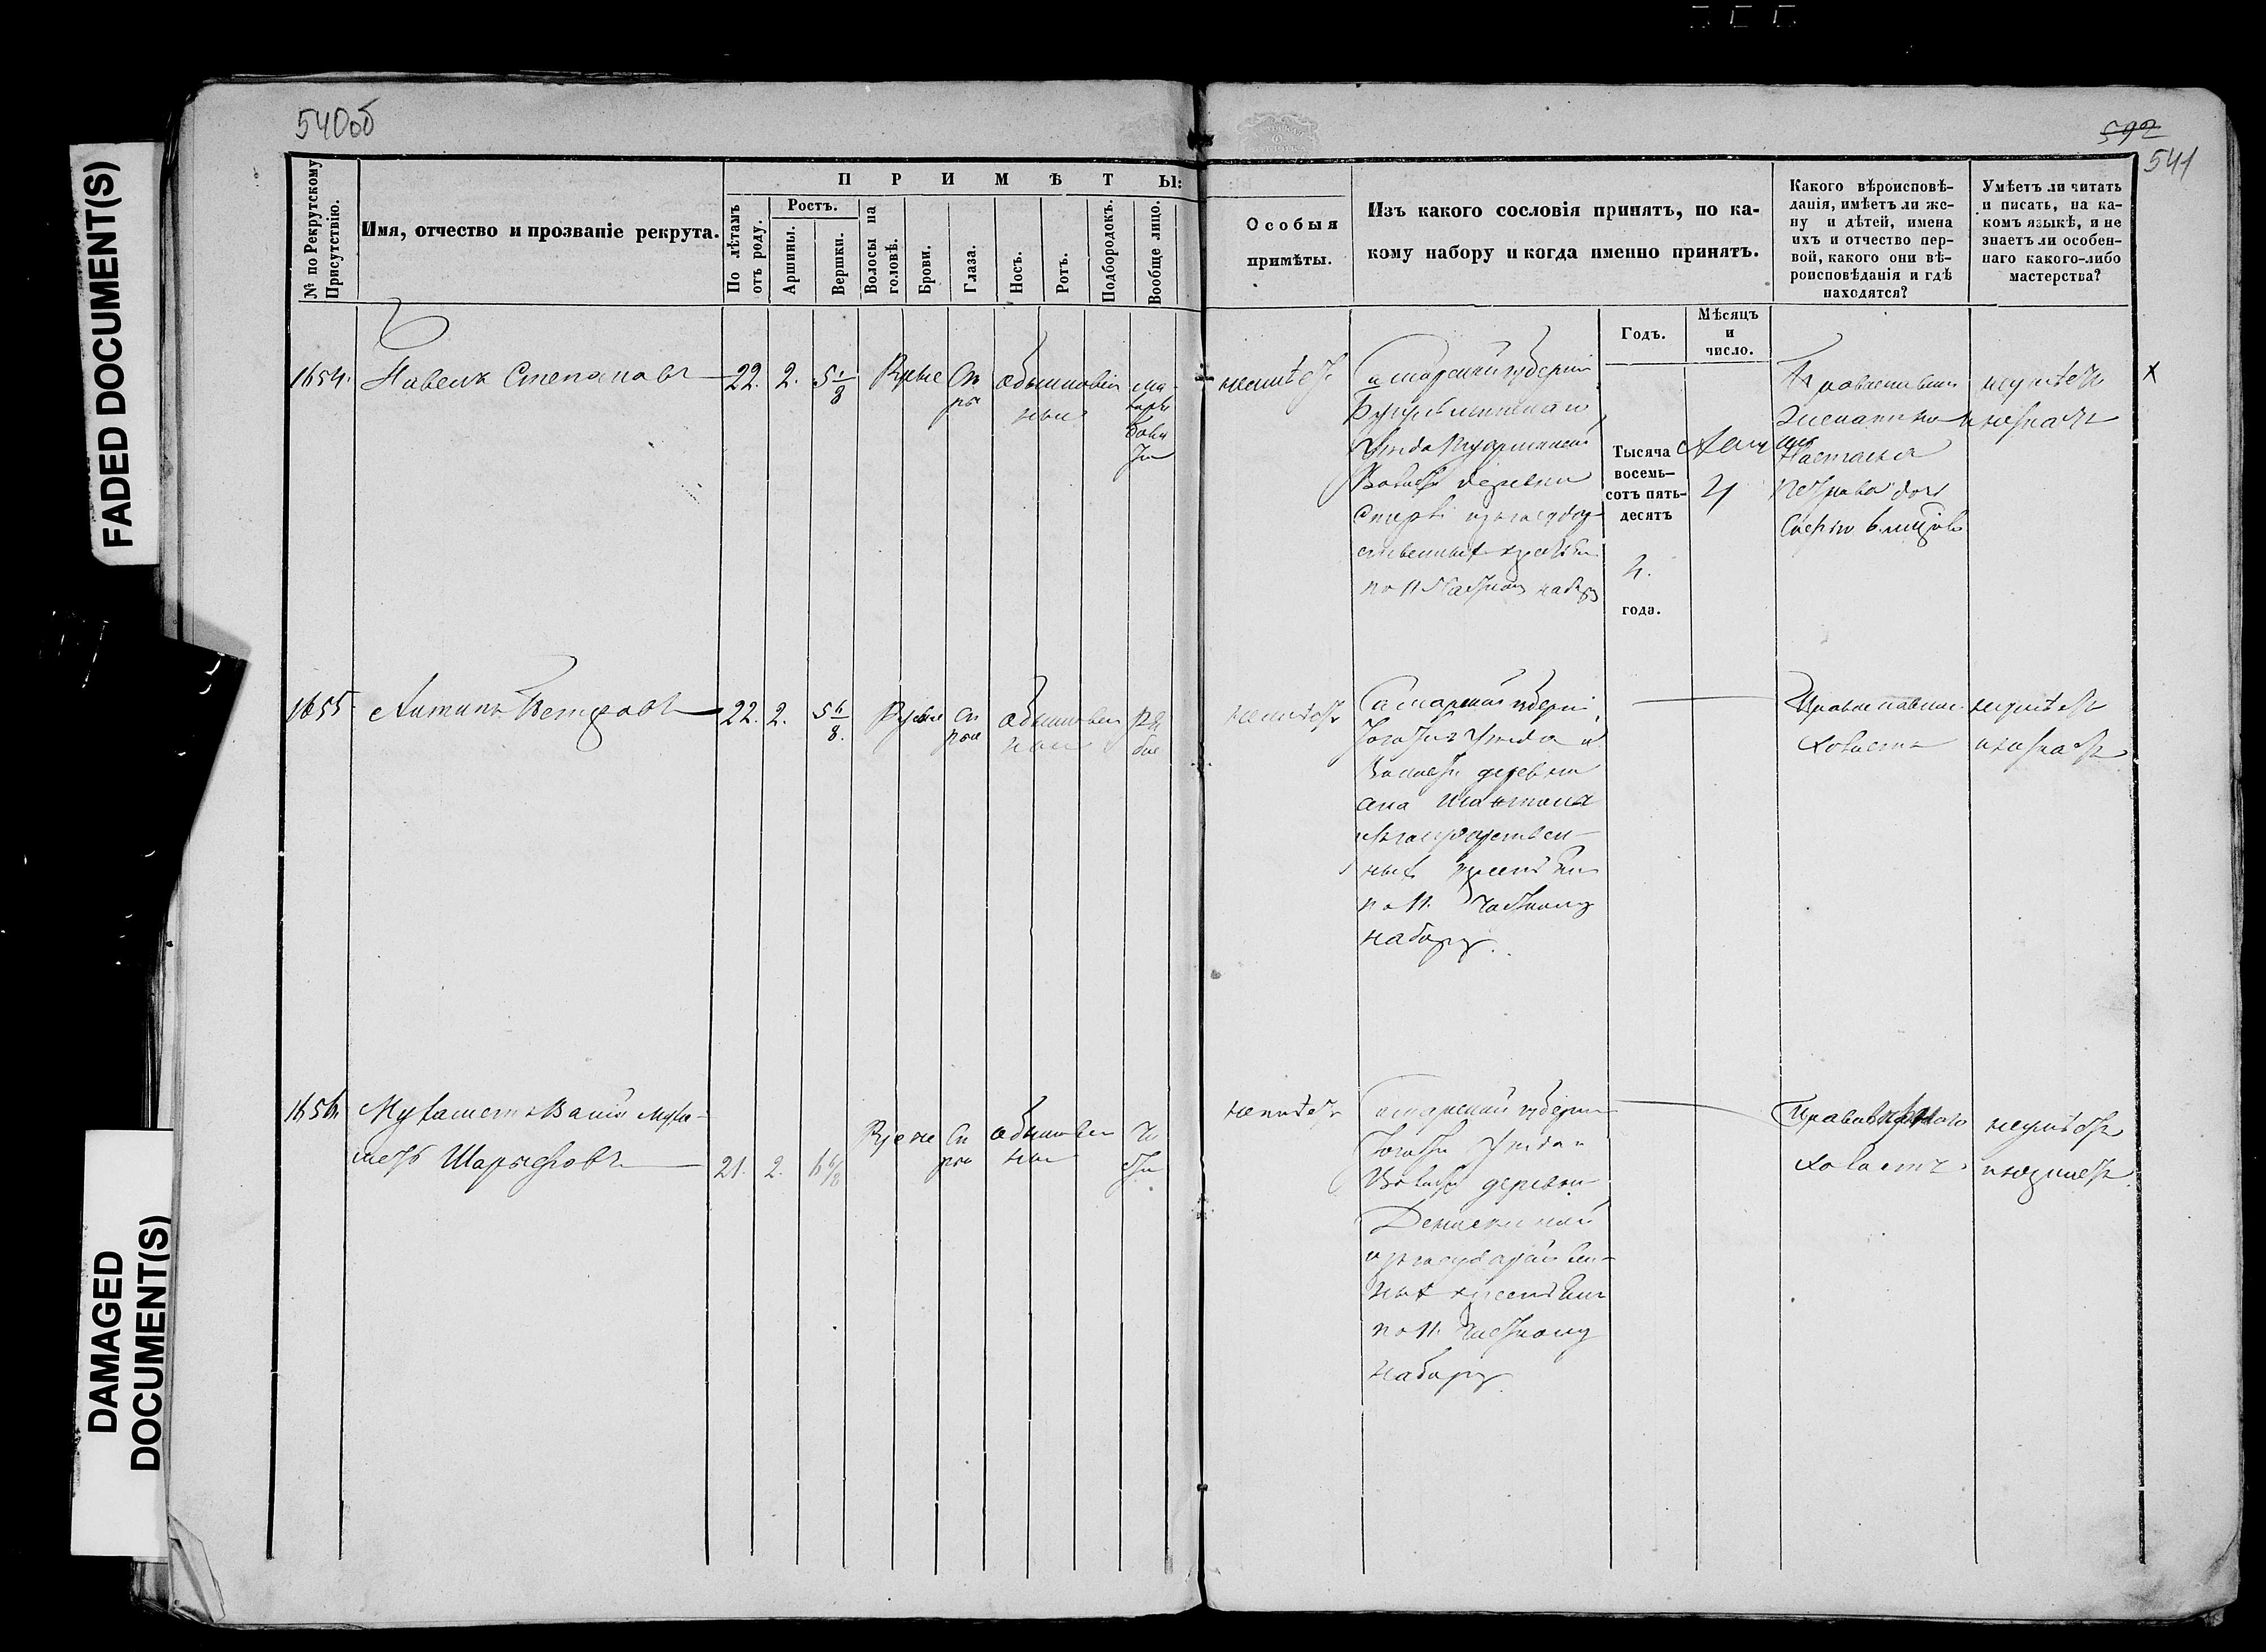 540об
592
541
FADED DOCUMENT(S)
DAMAGED
DOCUMENT(S)
№ по Рекрутскому
Присутствію.
Имя, отчество и прозваніе рекрута.
ПРИМѢТЫ:
По лѣтамъ
отъ роду.
Ростъ.
Аршины.
Вершки.
Волосы на
головѣ.
Брови.
Глаза.
Носъ.
Ротъ.
Подбородокъ.
Вообще лицо.
Особыя
примѣты.
Изъ какого сословія принятъ, по ка-
кому набору и когда именно принятъ.
Годъ.
Мѣсяцъ
и
число.
Какого вѣроисповѣ-
данія, имѣетъ ли же-
ну и дѣтей, имена
ихъ и отчество пер-
вой, какого они вѣ-
роисповѣданія и гдѣ
находятся?
Умѣетъ ли читать
и писать, на ка-
комъ языкѣ, и не
знаетъ ли особен-
наго какого-либо
мастерства?
1654.
Павелъ Степановъ
22. 2. 5 1/8
Русые
Сѣ
рые
обыкновен
ные
неимѣетъ
Самарской губерніи
Бугульминскаго
Уѣзда
Волости деревни
изъ государ
ственныхъ крестьян
по 11 Частному набору
Тысяча
восемь-
сотъ пять-
десятъ
4.
года.
Православнаго
Женатъ
Настасья
Петрова дочь
неумѣетъ
и незнаетъ
х
1655
Антипъ Петровъ
22. 2. 5 6/8.
Русые
Сѣ
рые
обыкновен
ные
ря
бое
неимѣетъ
Самарской губерніи
Тогожъ Уѣзда и
Волости деревни
Шантала
изъ государствен-
ныхъ крестьян
по 11. Частному
набору.
Православнаго
Холостъ
неумѣетъ
и незнаетъ
1656
Мухаметъ Вали Муха-
метъ Шарыповъ
21. 2. 6 6/8
Русые
Сѣ
рые
обыкновен
ные
чи
стое
неимѣетъ
Самарской губерніи
Тогожъ Уѣзда и
Волости деревни
Денискиной
изъ государствен-
ныхъ крестьян
по 11. Частному
набору.
Холостъ
неумѣетъ